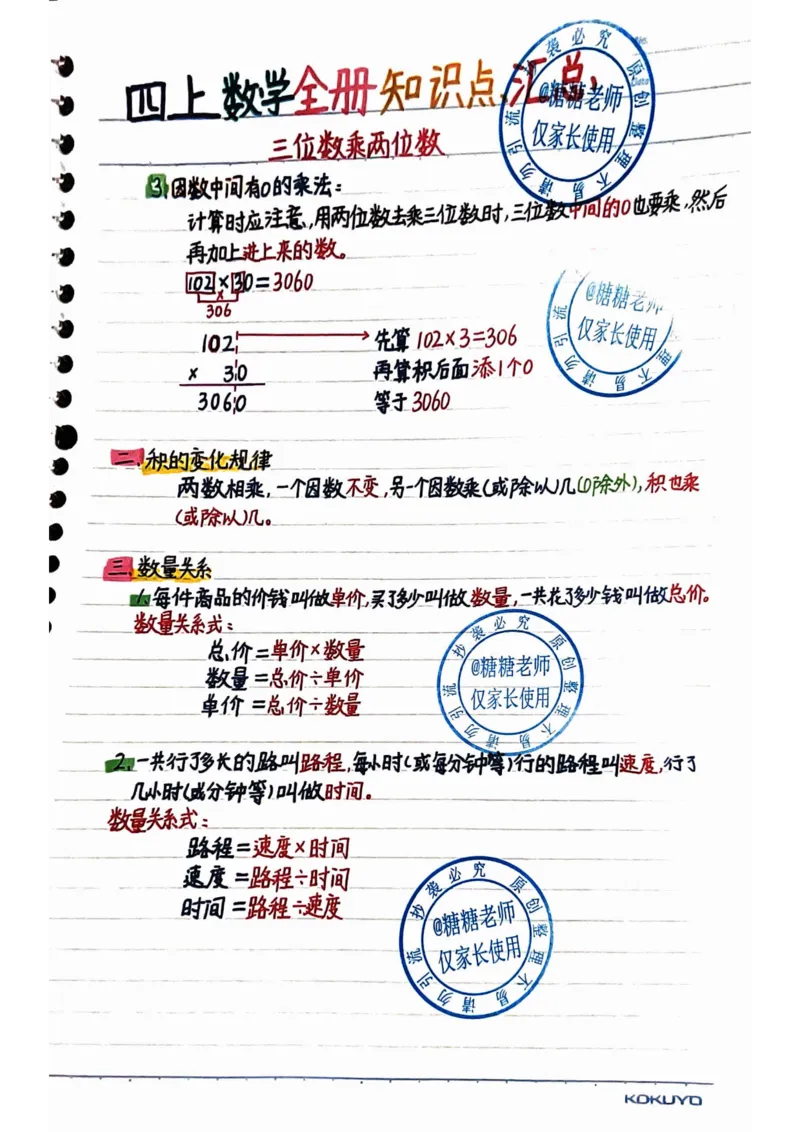 四上数学全册知识点汇总
三位数乘两位数
3.因数中间有0的乘法:
计算时应注意,用两位数去乘三位数时,三位数中间的0也要乘,然后
再加上进上来的数。
102×30=3060
×
306
102 先算102×3=306
× 30 再算积后面添1个0
3060 等于3060
二、积的变化规律
两数相乘,一个因数不变,另一个因数乘(或除以)几(0除外),积也乘
(或除以)几。
三、数量关系
1.每件商品的价钱叫做单价,买了多少叫做数量,一共花了多少钱叫做总价。
数量关系式:
总价=单价×数量
数量=总价÷单价
单价=总价÷数量
2.一共行了多长的路叫路程,每小时(或每分钟等)行的路程叫速度,行了
几小时(或分钟等)叫做时间。
数量关系式:
路程=速度×时间
速度=路程÷时间
时间=路程÷速度
原创整理不易请勿引流抄袭必究
@糖糖老师
仅家长使用
@糖糖老师
仅家长使用
理不易请勿引流
原创整理不易请勿引流抄袭必究
@糖糖老师
仅家长使用
原创整理不易请勿引流抄袭必究
@糖糖老师
仅家长使用
KOKUYO